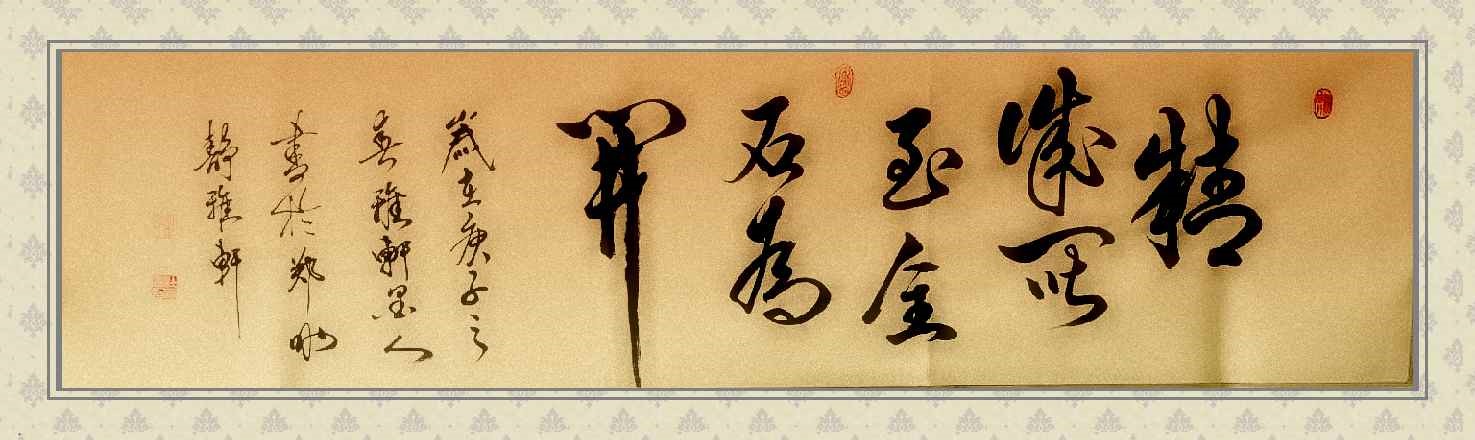 精
誠所
至金
石為
開
歲在庚子之
春雅軒墨人
書於鄭州
靜雅軒